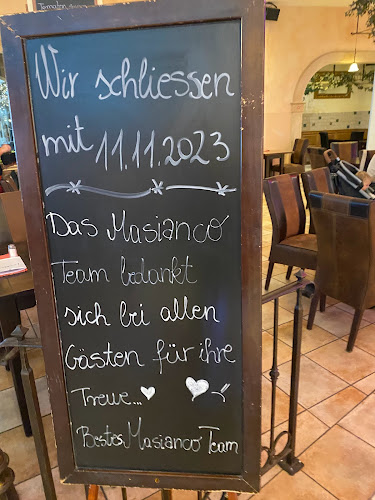 Tomaten
Wir schliessen
mit 11.11.2023
Das Masianco
Team bedankt
sich bei allen
Gästen für ihre
Treue...
Bestes Masianco Team